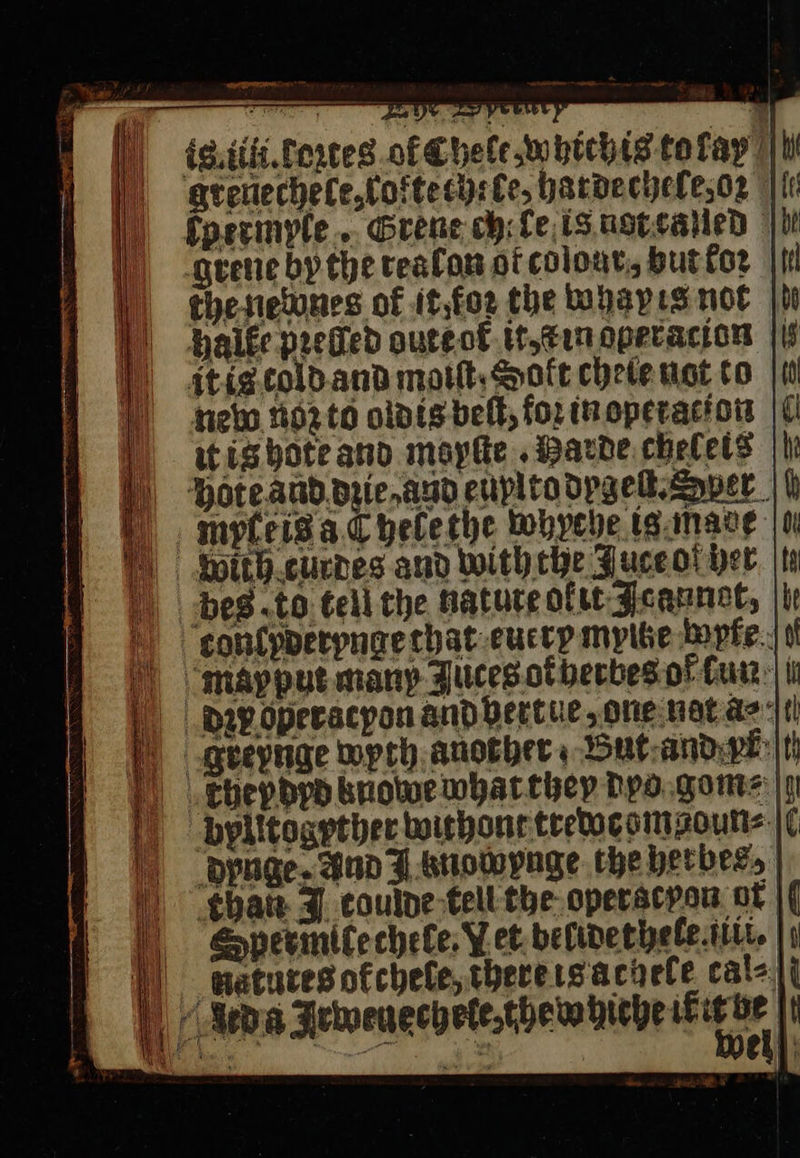 The Dyetary
is.iiii.sortes of Chese, which is to say
grenechese, softechese, hardechese, or
spermyse. Grene chese, is not called
grene by the reason of colour, but for
the newnes of it, for the whay is not
halfe pressed oute of it, & in operacion
it is cold and moist. Soft chese not to
new nor to old is best, for in operacion
it is hote and moyste. Harde chese is
hote and drie, and euyl to dygest. Sper
myse is a Chese the whyche is made
with curdes and with the Juce of her
bes. to tell the nature of it I cannot,
consyderynge that euery mylke wyfe
may put many Juces of herbes of sun
dry operacyon and vertue, one not a=
greynge wyth another. But and yf
they dyd knowe what they dyd gom=
byll togyther withont trew compoun=
dynge. And I knowynge the herbes,
than I coulde tell the operacyon of
Spermise chese. Yet beside these.iiii.
natures of chese, there is a chese cal=
led a Jrweuechese, the whiche if it be
wel